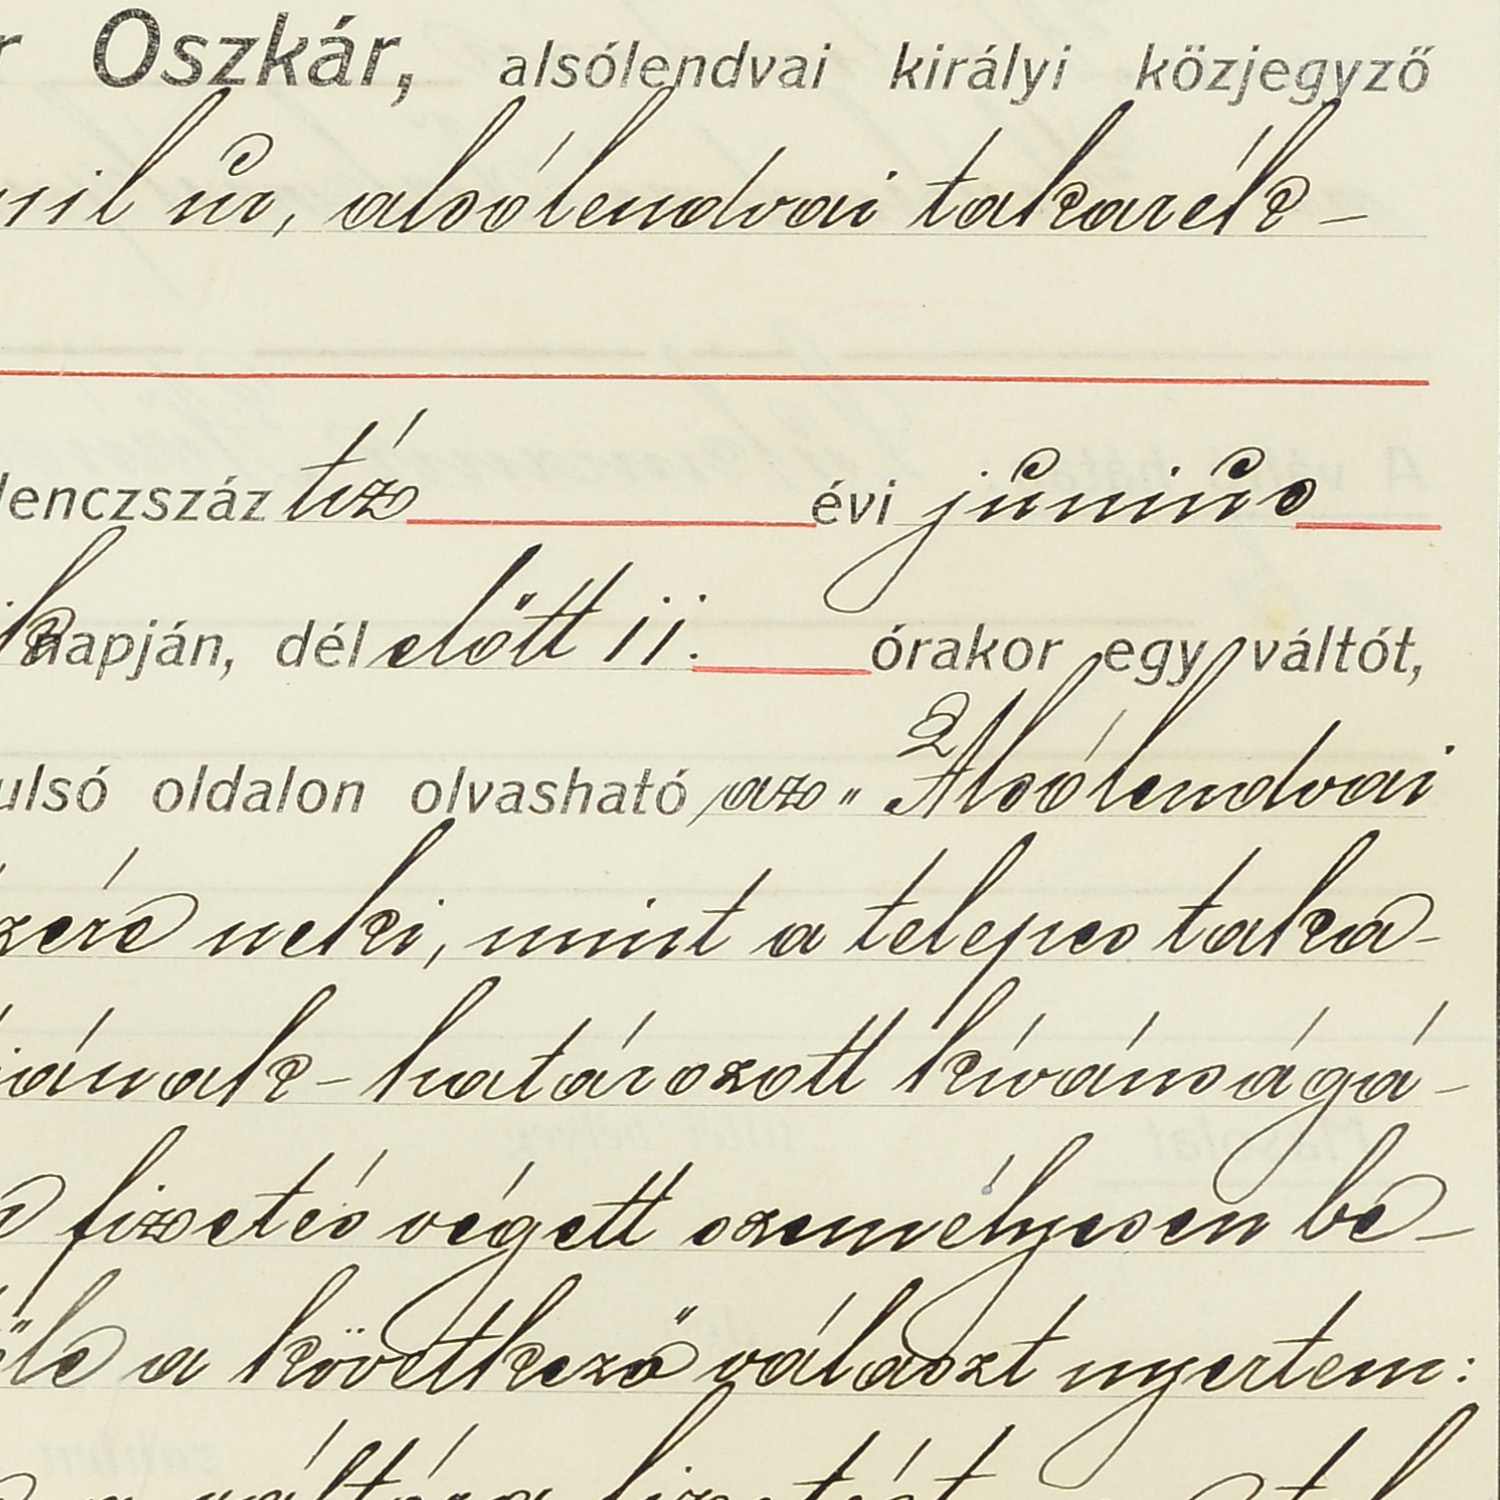 r Oszkár, alsólendvai királyi közjegyző
úr, alsólendvai takarék-
lenczszáz tíz évi június
napján, dél előtt 11. órakor egy váltót,
ulsó oldalon olvasható, az „Alsólendvai
neki, mint a telepes taka-
határozott kívánságá-
fizetés végett személyesen be-
a következő választ nyertem: